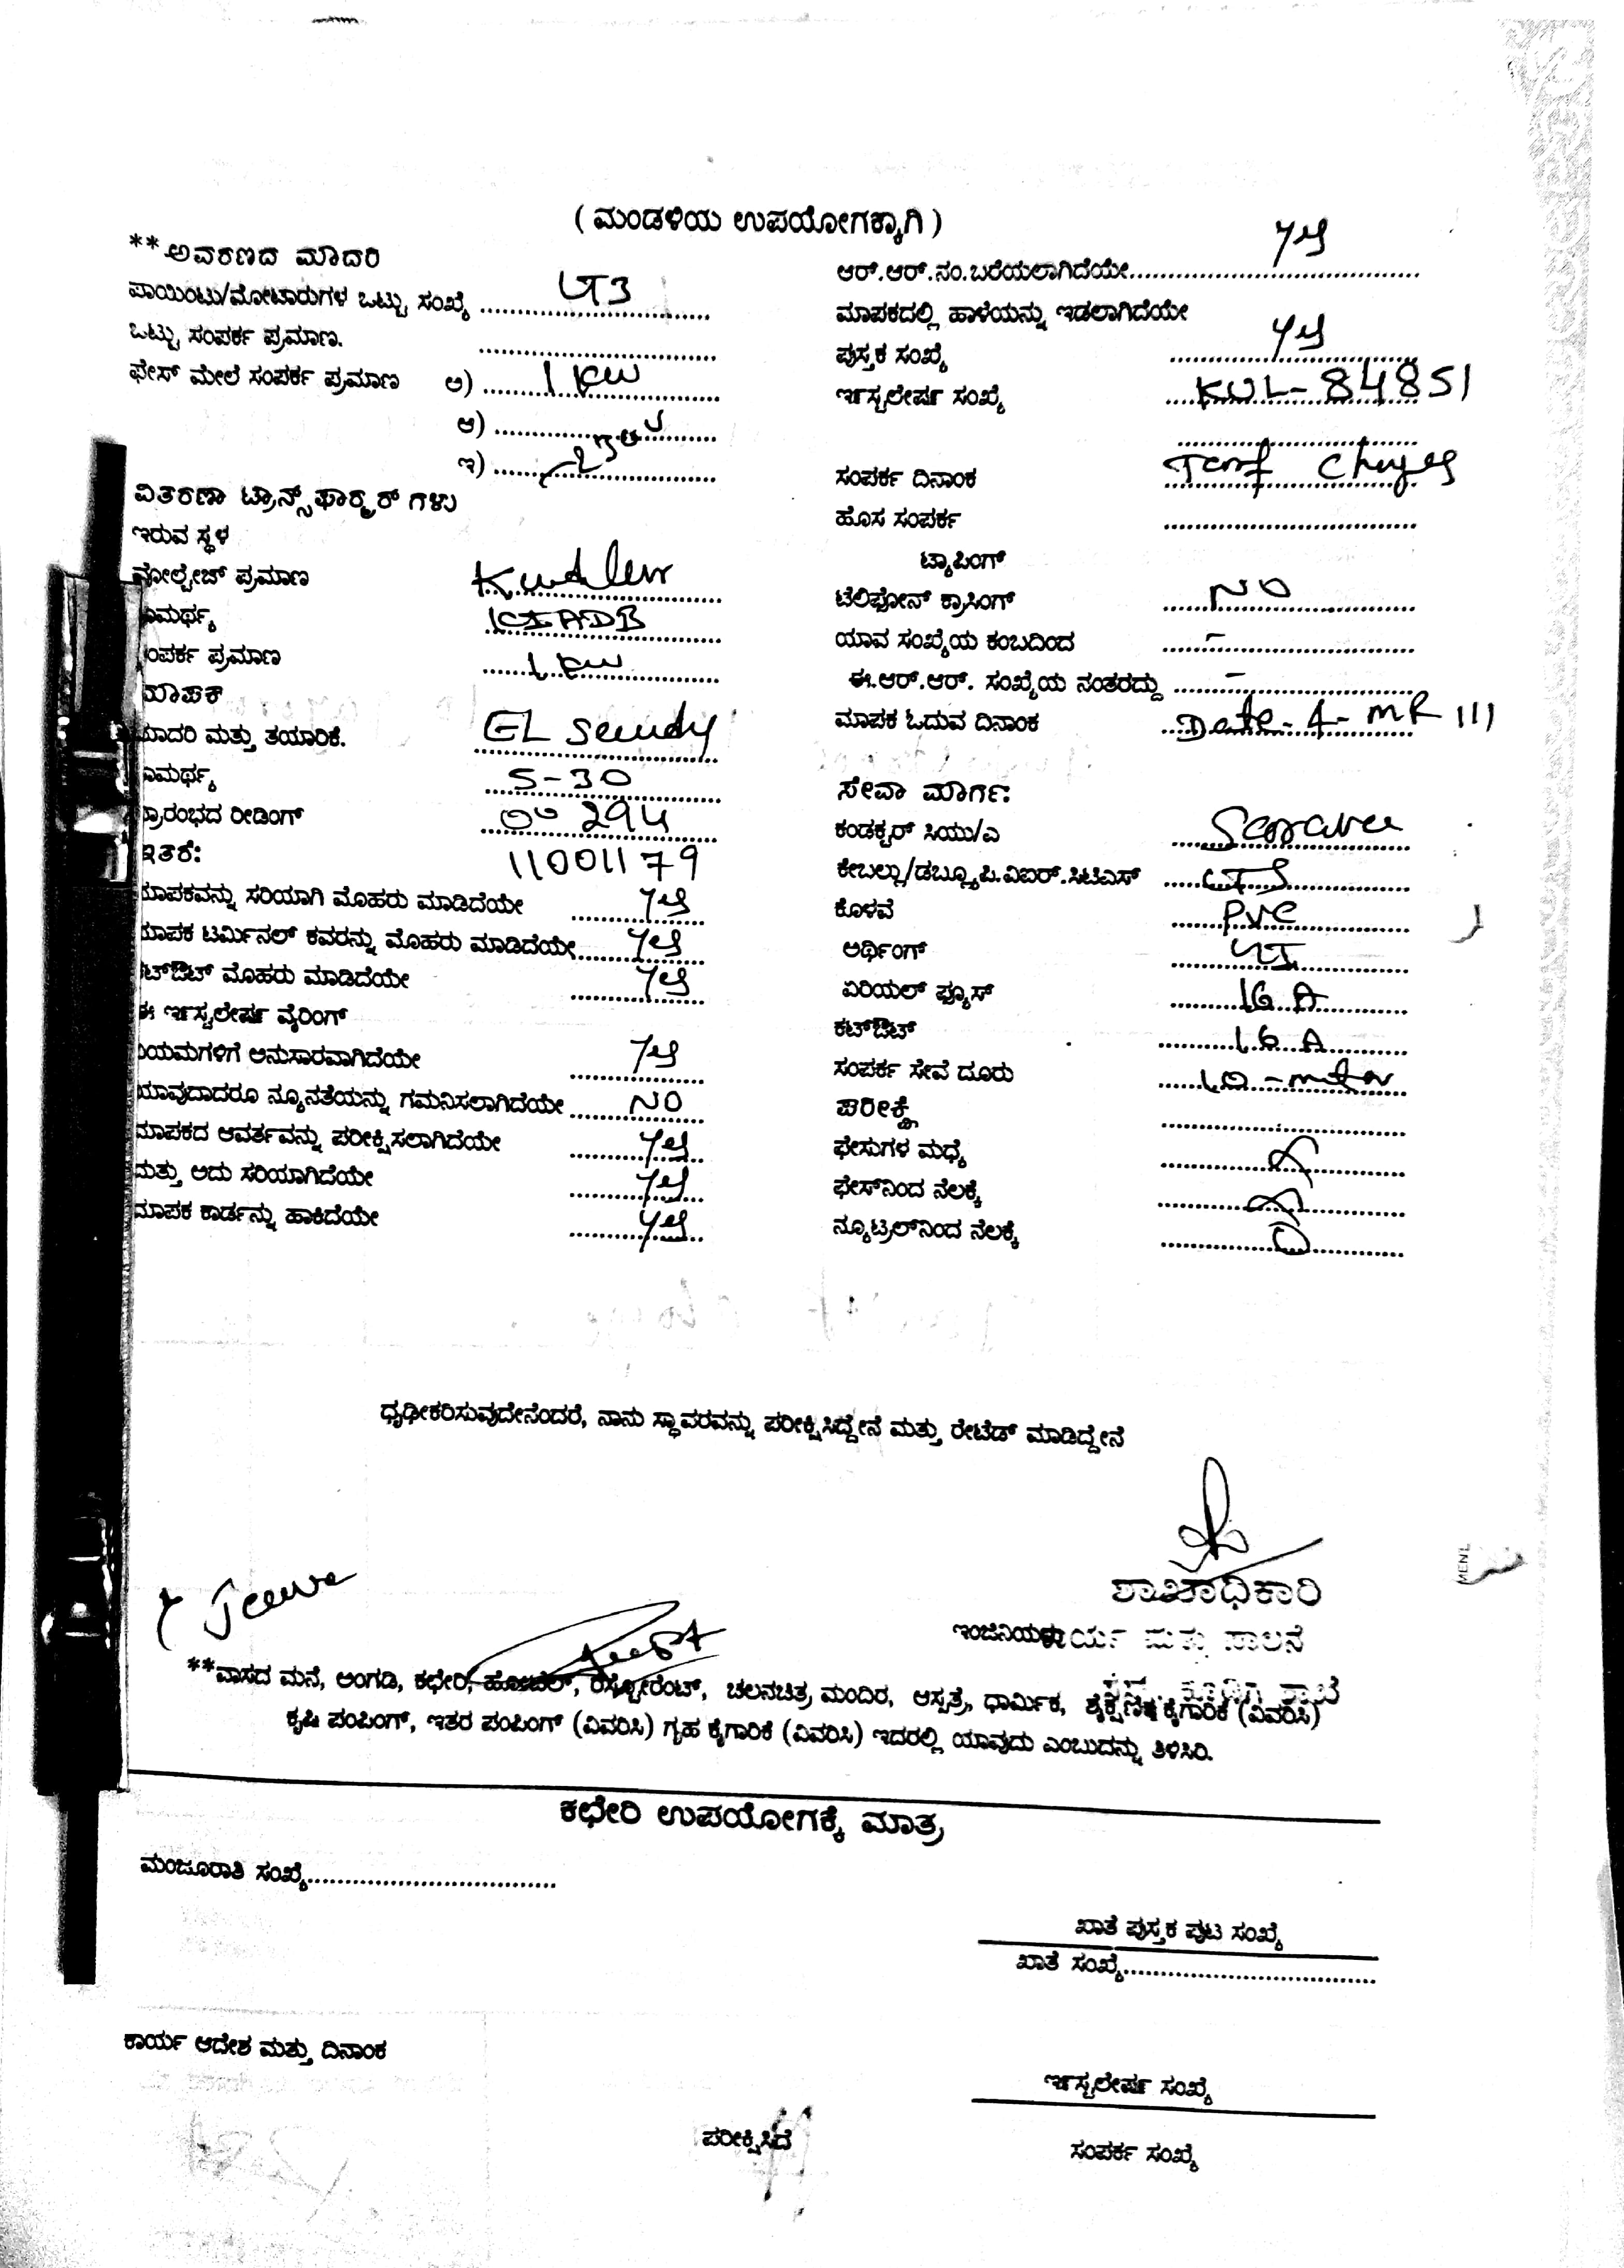 ( ಮಂಡಳಿಯ ಉಪಯೋಗಕ್ಕಾಗಿ )
**ಅವರಣದ ಮಾದರಿ
ಪಾಯಿಂಟು/ಮೋಟಾರುಗಳ ಒಟ್ಟು ಸಂಖ್ಯೆ LT3
ಒಟ್ಟು ಸಂಪರ್ಕ ಪ್ರಮಾಣ.
ಫೇಸ್ ಮೇಲೆ ಸಂಪರ್ಕ ಪ್ರಮಾಣ ಅ) 1 KW
ಆ)
ಇ)
ವಿತರಣಾ ಟ್ರಾನ್ಸ್‌ಫಾರ್ಮರ್ ಗಳು
ಇರುವ ಸ್ಥಳ
ವೋಲ್ಟೇಜ್ ಪ್ರಮಾಣ
ಾಮರ್ಥ್ಯ KIADB
ಂಪರ್ಕ ಪ್ರಮಾಣ 1 KW
ಮಾಪಕ
ಮಾದರಿ ಮತ್ತು ತಯಾರಿಕೆ. EL
ಾಮರ್ಥ್ಯ 5-30
ಪ್ರಾರಂಭದ ರೀಡಿಂಗ್ 00 294
ಇತರೆ: 11001179
ಮಾಪಕವನ್ನು ಸರಿಯಾಗಿ ಮೊಹರು ಮಾಡಿದೆಯೇ yes
ಮಾಪಕ ಟರ್ಮಿನಲ್ ಕವರನ್ನು ಮೊಹರು ಮಾಡಿದೆಯೇ yes
ಕಟ್‌ಔಟ್ ಮೊಹರು ಮಾಡಿದೆಯೇ yes
ಈ ಇನ್ಸ್ಟಲೇಷನ್ ವೈರಿಂಗ್
ನಿಯಮಗಳಿಗೆ ಅನುಸಾರವಾಗಿದೆಯೇ yes
ಯಾವುದಾದರೂ ನ್ಯೂನತೆಯನ್ನು ಗಮನಿಸಲಾಗಿದೆಯೇ NO
ಮಾಪಕದ ಆವರ್ತವನ್ನು ಪರೀಕ್ಷಿಸಲಾಗಿದೆಯೇ yes
ಮತ್ತು ಅದು ಸರಿಯಾಗಿದೆಯೇ yes
ಮಾಪಕ ಕಾರ್ಡನ್ನು ಹಾಕಿದೆಯೇ yes
ಆರ್.ಆರ್.ನಂ.ಬರೆಯಲಾಗಿದೆಯೇ yes
ಮಾಪಕದಲ್ಲಿ ಹಾಳೆಯನ್ನು ಇಡಲಾಗಿದೆಯೇ
ಪುಸ್ತಕ ಸಂಖ್ಯೆ yes
ಇನ್ಸ್ಟಲೇಷನ್ ಸಂಖ್ಯೆ KUL-84851
ಸಂಪರ್ಕ ದಿನಾಂಕ
ಹೊಸ ಸಂಪರ್ಕ
ಟ್ಯಾಪಿಂಗ್
ಟೆಲಿಫೋನ್ ಕ್ರಾಸಿಂಗ್ NO
ಯಾವ ಸಂಖ್ಯೆಯ ಕಂಬದಿಂದ -
ಈ.ಆರ್.ಆರ್. ಸಂಖ್ಯೆಯ ನಂತರದ್ದು -
ಮಾಪಕ ಓದುವ ದಿನಾಂಕ Date-4-MR 111
ಸೇವಾ ಮಾರ್ಗ:
ಕಂಡಕ್ಟರ್ ಸಿಯು/ಎ
ಕೇಬಲ್ಲು/ಡಬ್ಲ್ಯೂಪಿ.ವಿಐರ್.ಸಿಟಿಎಸ್
ಕೊಳವೆ PVC
ಅರ್ಥಿಂಗ್
ಏರಿಯಲ್ ಫ್ಯೂಸ್ 16 A
ಕಟ್‌ಔಟ್ 16 A
ಸಂಪರ್ಕ ಸೇವೆ ದೂರು 10-
ಪರೀಕ್ಷೆ
ಫೇಸುಗಳ ಮಧ್ಯೆ
ಫೇಸ್‌ನಿಂದ ನೆಲಕ್ಕೆ
ನ್ಯೂಟ್ರಲ್‌ನಿಂದ ನೆಲಕ್ಕೆ
ಧೃಢೀಕರಿಸುವುದೇನೆಂದರೆ, ನಾನು ಸ್ಥಾವರವನ್ನು ಪರೀಕ್ಷಿಸಿದ್ದೇನೆ ಮತ್ತು ರೇಟೆಡ್ ಮಾಡಿದ್ದೇನೆ
ಶಾಖಾಧಿಕಾರಿ
**ವಾಸದ ಮನೆ, ಅಂಗಡಿ, ಕಛೇರಿ, ಹೋಟೆಲ್, ರೆಸ್ಟೋರೆಂಟ್, ಚಲನಚಿತ್ರ ಮಂದಿರ, ಆಸ್ಪತ್ರೆ, ಧಾರ್ಮಿಕ, ಶೈಕ್ಷಣಿಕ ಕೈಗಾರಿಕೆ (ವಿವರಿಸಿ)
ಕೃಷಿ ಪಂಪಿಂಗ್, ಇತರ ಪಂಪಿಂಗ್ (ವಿವರಿಸಿ) ಗೃಹ ಕೈಗಾರಿಕೆ (ವಿವರಿಸಿ) ಇದರಲ್ಲಿ ಯಾವುದು ಎಂಬುದನ್ನು ತಿಳಿಸಿರಿ.
ಕಛೇರಿ ಉಪಯೋಗಕ್ಕೆ ಮಾತ್ರ
ಮಂಜೂರಾತಿ ಸಂಖ್ಯೆ
ಖಾತೆ ಪುಸ್ತಕ ಪುಟ ಸಂಖ್ಯೆ
ಖಾತೆ ಸಂಖ್ಯೆ
ಕಾರ್ಯ ಆದೇಶ ಮತ್ತು ದಿನಾಂಕ
ಇನ್ಸ್ಟಲೇಷನ್ ಸಂಖ್ಯೆ
ಪರೀಕ್ಷಿಸಿದೆ
ಸಂಪರ್ಕ ಸಂಖ್ಯೆ